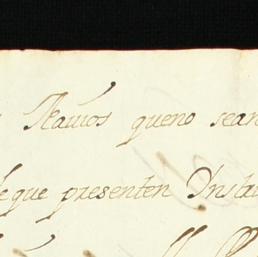 Ramos queno sean
que presenten Insta